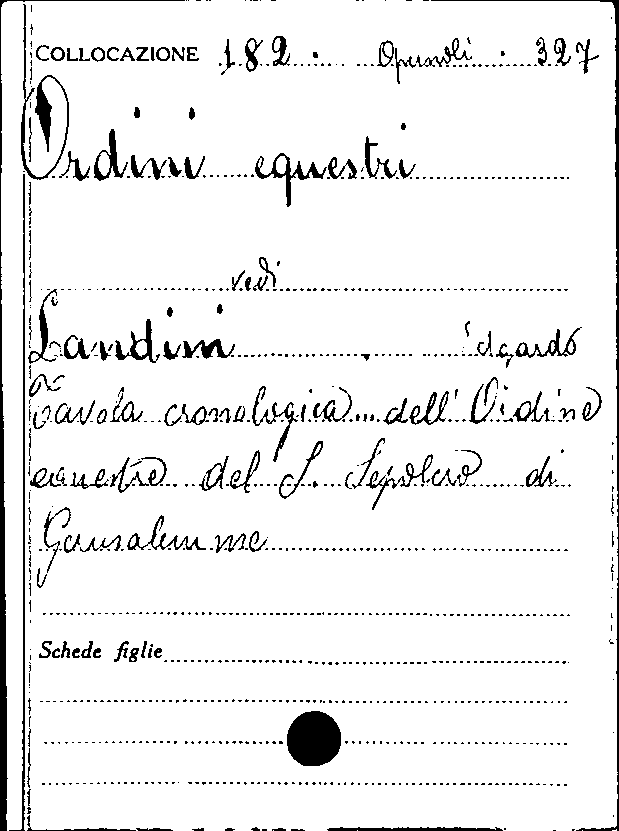 COLLOCAZIONE 182. Opuscoli. 327
Ordini equestri
vedi
Landini Edgardo
Tavola cronologica... dell'Ordine
equestre del S. Sepolcro di
Gerusalemme
Schede figlie